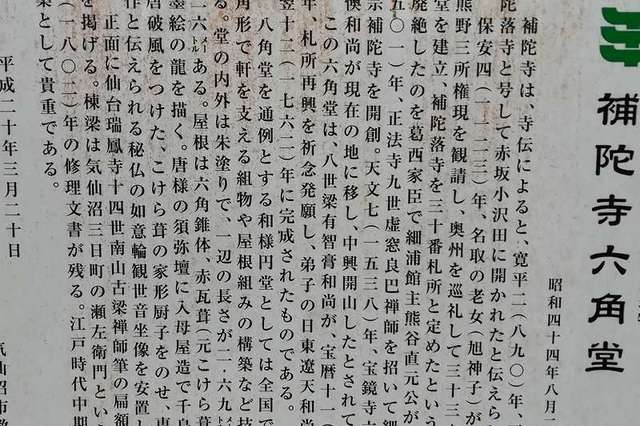 補陀寺六角堂
昭和四十四年八月一
補陀寺は、寺伝によると、寛平二（八九〇）年、
陀落寺と号して赤坂小沢田に開かれたと伝えら
保安四（一一二三）年、名取の老女（旭神子）が
熊野三所権現を観請し、奥州を巡礼して三十三
堂を建立、補陀落寺を三十番札所と定めたという
廃絶したのを葛西家臣で細浦館主熊谷直元公が
五〇一）年、正法寺九世虚窓良巴禅師を招いて細
宗補陀寺を開創。天文七（一五三八）年、宝鏡寺六
倹和尚が現在の地に移し、中興開山したとされて
この六角堂は、八世梁有智膏和尚が、宝暦十一（
年、札所再興を祈念発願し、弟子の日東遼天和尚
翌十二（一七六二）年に完成されたものである。
八角堂を通例とする和様円堂としては全国で
角形で軒を支える組物や屋根組みの構築など技
る。堂の内外は朱塗りで、一辺の長さが二・六九
二六㍍ある。屋根は六角錐体、赤瓦葺（元こけら葺
墨絵の龍を描く。唐様の須弥壇に入母屋造で千鳥
唐破風をつけた、こけら葺の家形厨子をのせ、恵
作と伝えられる秘仏の如意輪観世音坐像を安置し
正面に仙台瑞鳳寺十四世南山古梁禅師筆の扁額
を掲げる。棟梁は気仙沼三日町の瀬左衛門とい
（一八〇二）年の修理文書が残る。江戸時代中期
築として貴重である。
平成二十年三月二十日
気仙沼市教